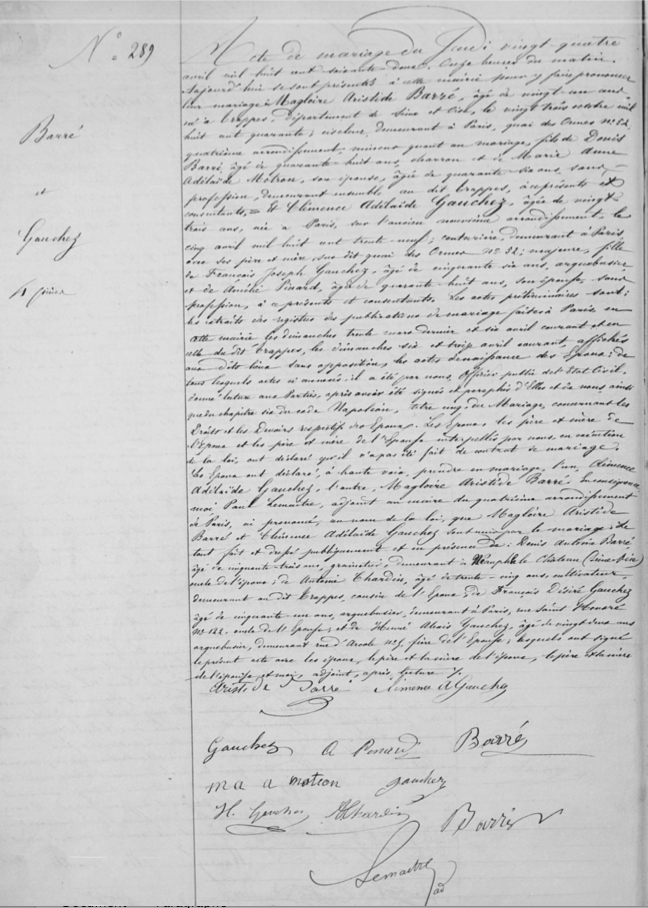 N° 289
Barré
et
Gauchez
Acte de mariage du Jeudi vingt quatre
avril mil huit cent soixante deux. Onze heures du matin.
Aujourd'hui se sont présentés à cette mairie pour y faire prononcer
leur mariage : Magloire Aristide Barré, âgé de vingt un ans,
né à Trappes, département de Seine et Oise, le vingt trois octobre mil
huit cent quarante ; ciseleur, demeurant à Paris, quai des Ormes n° 52,
quatrième arrondissement, mineur quant au mariage, fils de Denis
Barré, âgé de quarante huit ans, charron et de Marie Anne
Adélaïde Motron, son épouse, âgée de quarante six ans, sans
profession, demeurant ensemble au dit Trappes, à ce présents et
consentants. = Et Clémence Adélaïde Gauchez, âgée de vingt
trois ans, née à Paris, sur l'ancien neuvième arrondissement, le
cinq avril mil huit cent trente neuf ; couturière, demeurant à Paris
avec ses père et mère, sus dit quai des Ormes n° 52 ; majeure, fille
de François Joseph Gauchez, âgé de cinquante six ans, arquebusier
et de Amélie Pinard, âgée de quarante huit ans, son épouse, sans
profession, à ce présents et consentants. Les actes préliminaires sont :
les extraits des registres des publications de mariage faites à Paris en
cette mairie les dimanches trente mars dernier et six avril courant et en
celle du dit Trappes, les dimanches six et treize avril courant, affichés
aux dits lieux sans opposition, les actes de naissance des Epoux ; de
tous lesquels actes il a été par nous, Officier public de l'Etat Civil,
donné lecture aux Parties, après avoir été signés et paraphés d'Elles et de nous ainsi
que du chapitre six du code Napoléon, titre cinq, du Mariage, concernant les
Droits et les Devoirs respectifs des Epoux. Les Epoux, les père et mère de
l'Epoux et les père et mère de l'Epouse interpellés par nous en exécution
de la loi, ont déclaré qu'il n'a pas été fait de contrat de mariage.
Les Epoux ont déclaré, à haute voix, prendre en mariage, l'un, Clémence
Adélaïde Gauchez, l'autre, Magloire Aristide Barré. En conséquence
moi Paul Lemaitre, adjoint au maire du quatrième arrondissement
de Paris, ai prononcé, au nom de la loi, que Magloire Aristide
Barré et Clémence Adélaïde Gauchez sont unis par le mariage. Le
tout fait et dressé publiquement et en présence de : Denis Antoine Barré
âgé de cinquante trois ans, grainetier, demeurant à Neauphle le Château (Seine-Oise)
oncle de l'époux ; de Antoine Chardin, âgé de trente cinq ans, cultivateur,
demeurant au dit Trappes, cousin de l'Epoux ; de François Désiré Gauchez
âgé de cinquante un ans, arquebusier, demeurant à Paris, rue Saint Honoré
n° 122, oncle de l'Epouse ; et de Henri Gauchez, âgé de vingt deux ans
arquebusier, demeurant rue d'Arcole n° frère de l'Epouse, lesquels ont signé
le présent acte avec les époux, le père et la mère de l'époux, le père et la mère
de l'épouse et moi, adjoint, après lecture
Aristide Barré Clémence A Gauchez
Gauchez A Pinard Barré
m a a motron gauchez
H. Gauchez A Chardin Barré
Lemaitre
ad